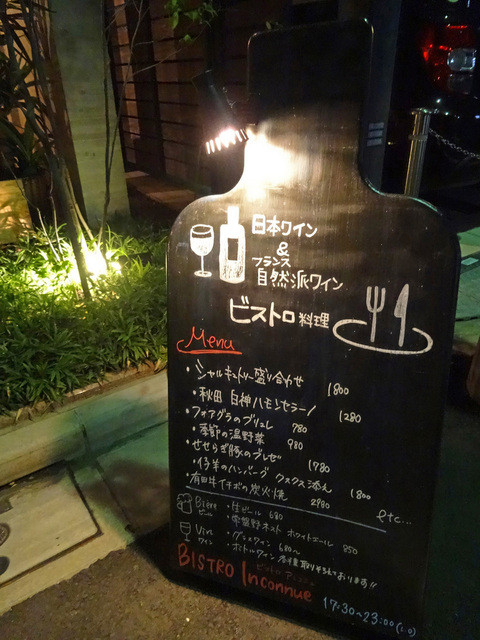 日本ワイン
&
フランス
自然派ワイン
ビストロ料理
Menu
・シャルキュトリー盛り合わせ 1800
・秋田 白神ハモンセラーノ 1280
・フォアグラのブリュレ 780
・季節の温野菜 980
・せせらぎ豚のブレゼ 1780
・仔羊のハンバーグ クスクス添え 1800
・有田牛イチボの炭火焼 2980
etc...
Bière ・生ビール 680
ビール ・常陸野ネスト ホワイトエール 850
Vin ・グラスワイン 680～
ワイン ・ボトルワイン 多種取りそろえております!!
BISTRO Inconnue
17:30～23:00(L.O)